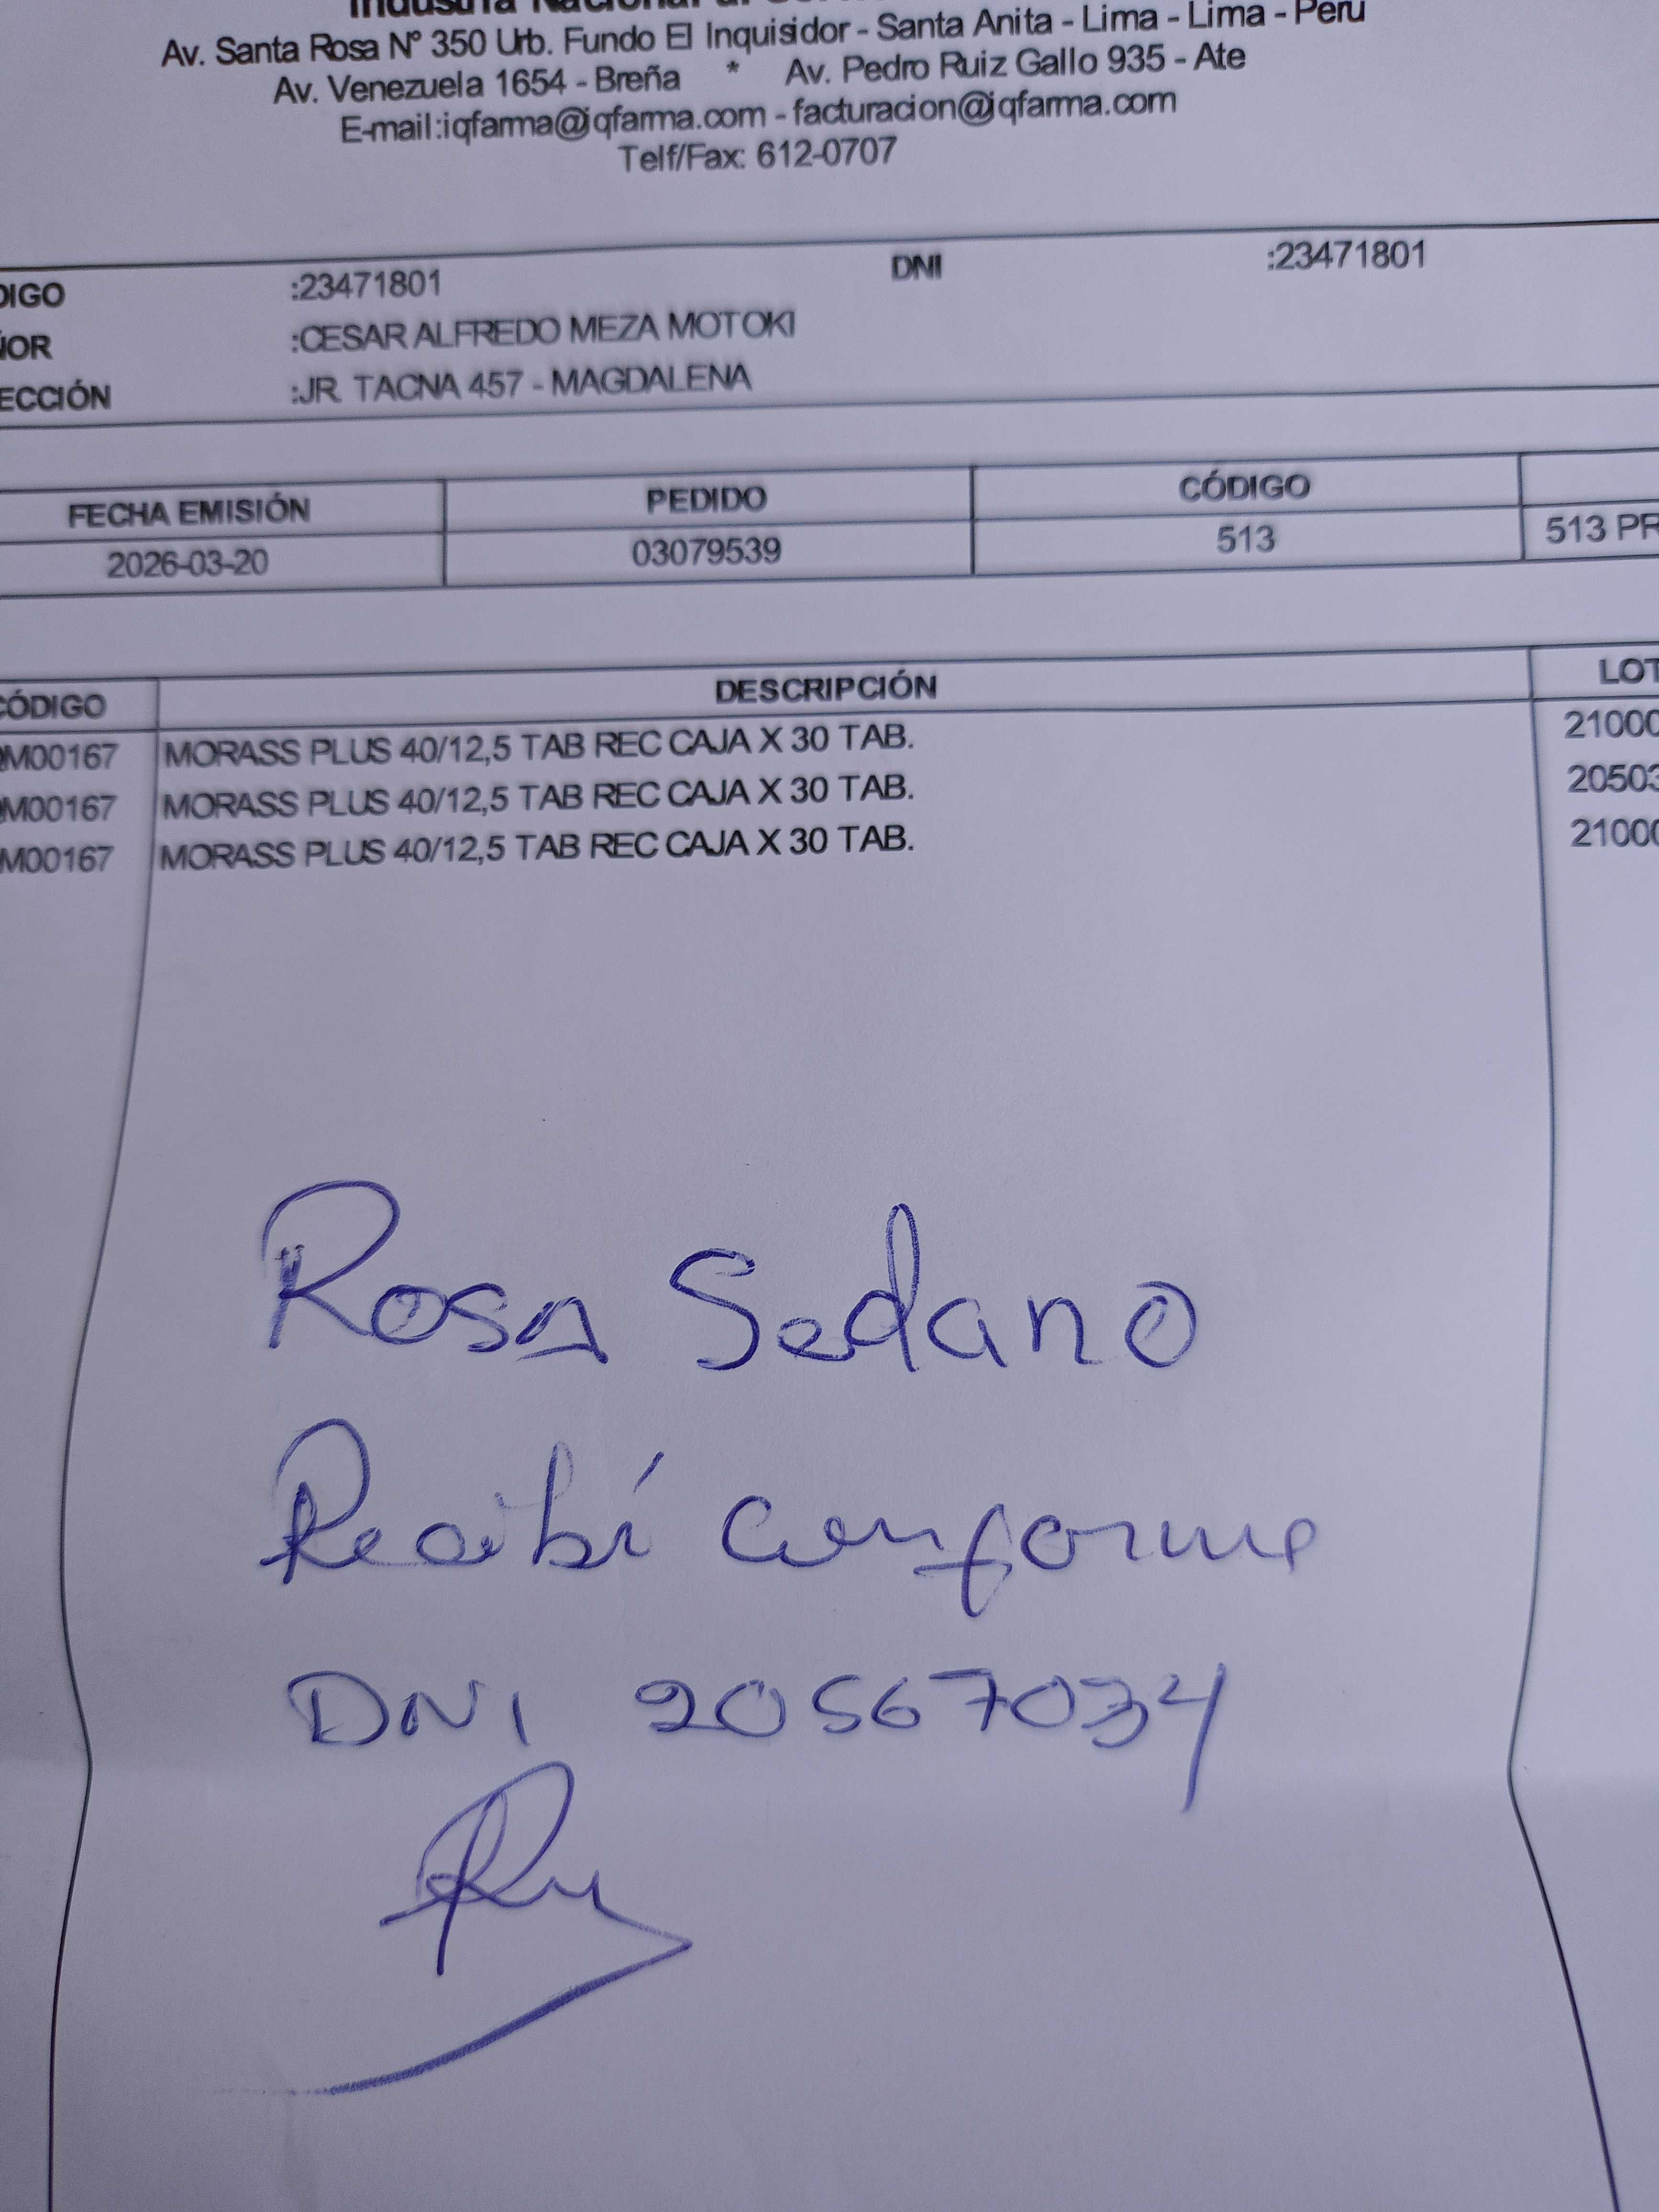 Av. Santa Rosa Nº 350 Urb. Fundo El Inquisidor - Santa Anita - Lima - Lima - Perú
Av. Venezuela 1654 - Breña * Av. Pedro Ruiz Gallo 935 - Ate
E-mail:iqfarma@iqfarma.com - facturacion@iqfarma.com
Telf/Fax: 612-0707
DIGO :23471801 DNI :23471801
ÑOR :CESAR ALFREDO MEZA MOTOKI
ECCIÓN :JR. TACNA 457 - MAGDALENA
FECHA EMISIÓN PEDIDO CÓDIGO
2026-03-20 03079539 513 513 PR
CÓDIGO DESCRIPCIÓN LOT
M00167 MORASS PLUS 40/12,5 TAB REC CAJA X 30 TAB. 21000
M00167 MORASS PLUS 40/12,5 TAB REC CAJA X 30 TAB. 20503
M00167 MORASS PLUS 40/12,5 TAB REC CAJA X 30 TAB. 21000
Rosa Sedano
Recibí conforme
DNI 20567034